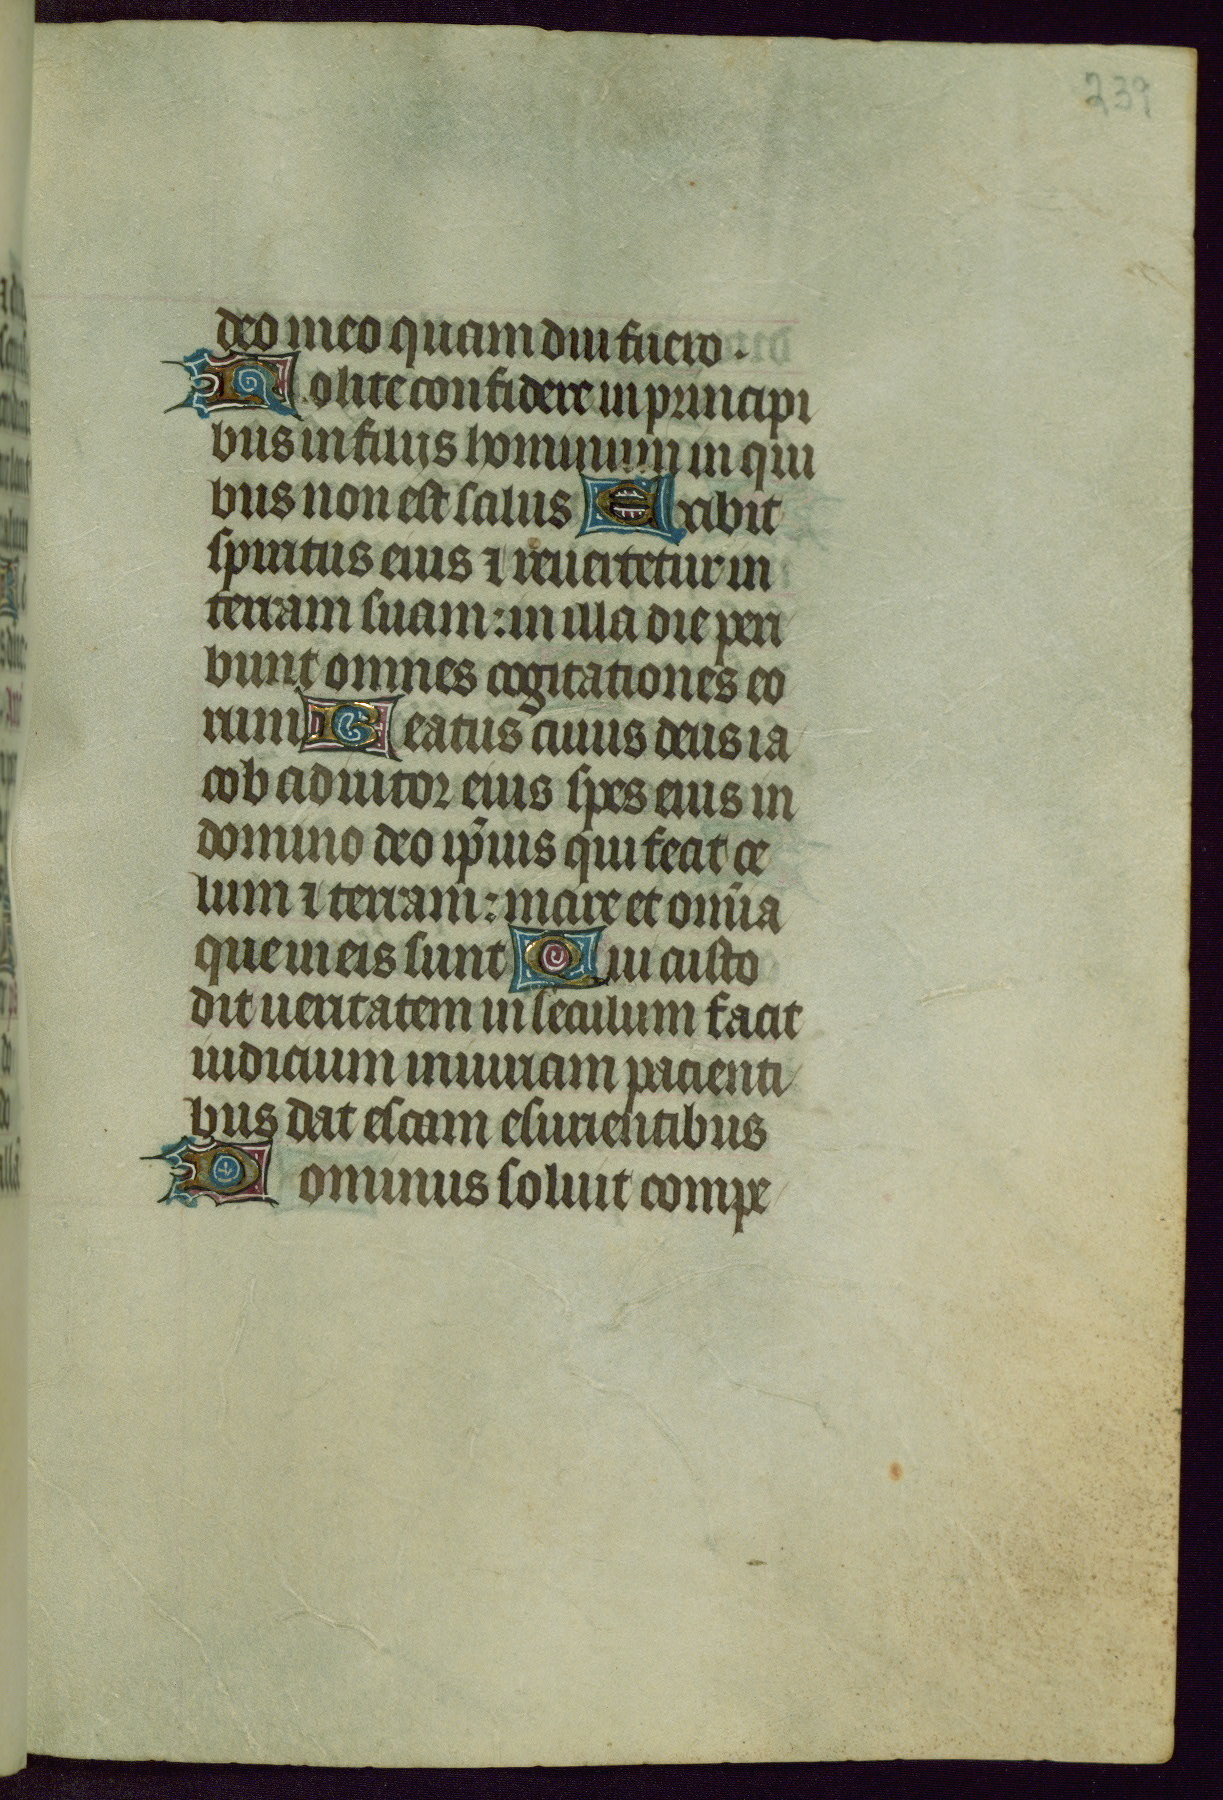 239
deo meo quam diu fuero.
Nolite confidere in principi
bus in filijs hominum in qui
bus non est salus Exibit
spiritus eius ⁊ reuertetur in
terram suam: in illa die peri
bunt omnes cogitationes eo
rum Beatus cuius deus ia
cob adiutor eius spes eius in
domino deo ip̄ius qui fecit ce
lum ⁊ terram: mare et om̄ia
que in eis sunt Qui custo
dit ueritatem in seculum facit
iudicium iniuriam pacienti
bus dat escam esurientibus
Dominus soluit compe